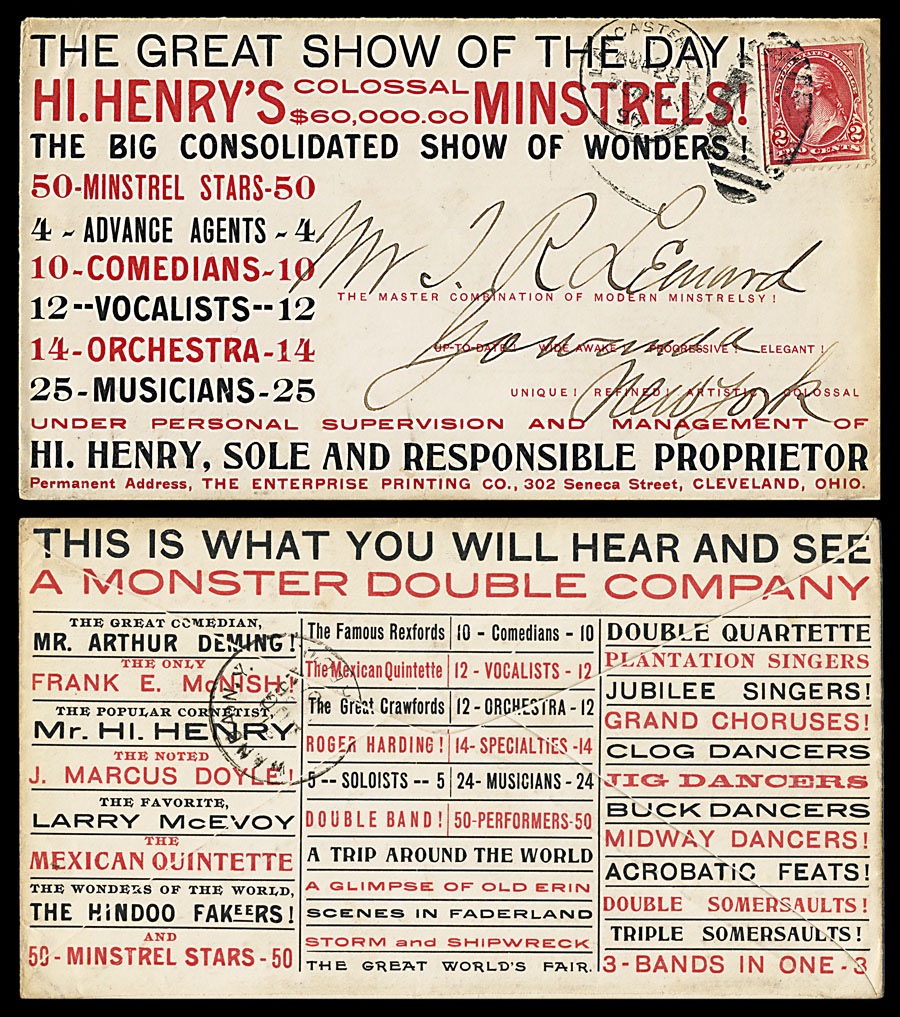 THE GREAT SHOW OF THE DAY!
HI. HENRY'S COLOSSAL $60,000.00 MINSTRELS!
THE BIG CONSOLIDATED SHOW OF WONDERS!
2 2
TWO CENTS
50-MINSTREL STARS-50
4 - ADVANCE AGENTS - 4
10-COMEDIANS-10
12--VOCALISTS--12
14-ORCHESTRA-14
25-MUSICIANS-25
Mr J. R. Leonard
THE MASTER COMBINATION OF MODERN MINSTRELSY!
Gowanda
UP-TO-DATE! WIDE AWAKE! PROGRESSIVE! ELEGANT!
UNIQUE! REFINED! ARTISTIC! COLOSSAL
New York
UNDER PERSONAL SUPERVISION AND MANAGEMENT OF
HI. HENRY, SOLE AND RESPONSIBLE PROPRIETOR
Permanent Address, THE ENTERPRISE PRINTING CO., 302 Seneca Street, CLEVELAND, OHIO.
THIS IS WHAT YOU WILL HEAR AND SEE
A MONSTER DOUBLE COMPANY
THE GREAT COMEDIAN,
MR. ARTHUR DEMING!
THE ONLY
FRANK E. McNISH!
THE POPULAR CORNETIST,
Mr. HI. HENRY
THE NOTED
J. MARCUS DOYLE!
THE FAVORITE,
LARRY McEVOY
THE
MEXICAN QUINTETTE
THE WONDERS OF THE WORLD,
THE HINDOO FAKEERS!
AND
50-MINSTREL STARS-50
The Famous Rexfords
10 - Comedians - 10
The Mexican Quintette
12 - VOCALISTS - 12
The Great Crawfords
12 - ORCHESTRA - 12
ROGER HARDING!
14- SPECIALTIES -14
5 -- SOLOISTS -- 5
24- MUSICIANS -24
DOUBLE BAND!
50-PERFORMERS-50
A TRIP AROUND THE WORLD
A GLIMPSE OF OLD ERIN
SCENES IN FADERLAND
STORM and SHIPWRECK
THE GREAT WORLD'S FAIR.
DOUBLE QUARTETTE
PLANTATION SINGERS
JUBILEE SINGERS!
GRAND CHORUSES!
CLOG DANCERS
JIG DANCERS
BUCK DANCERS
MIDWAY DANCERS!
ACROBATIC FEATS!
DOUBLE SOMERSAULTS!
TRIPLE SOMERSAULTS!
3-BANDS IN ONE-3